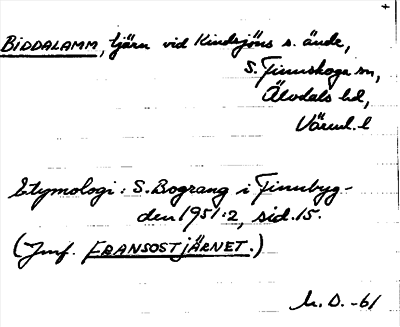 BIDDALAMM, tjärn vid Kindsjöns s. ände,
S. Finnskoga sn,
Älvdals hd,
Värml. l
Etymologi: S. Bograng i Finnbyg-
den 1951:2, sid. 15.
(Jmf. FRANSOSTJÄRNET.)
h. D. -61